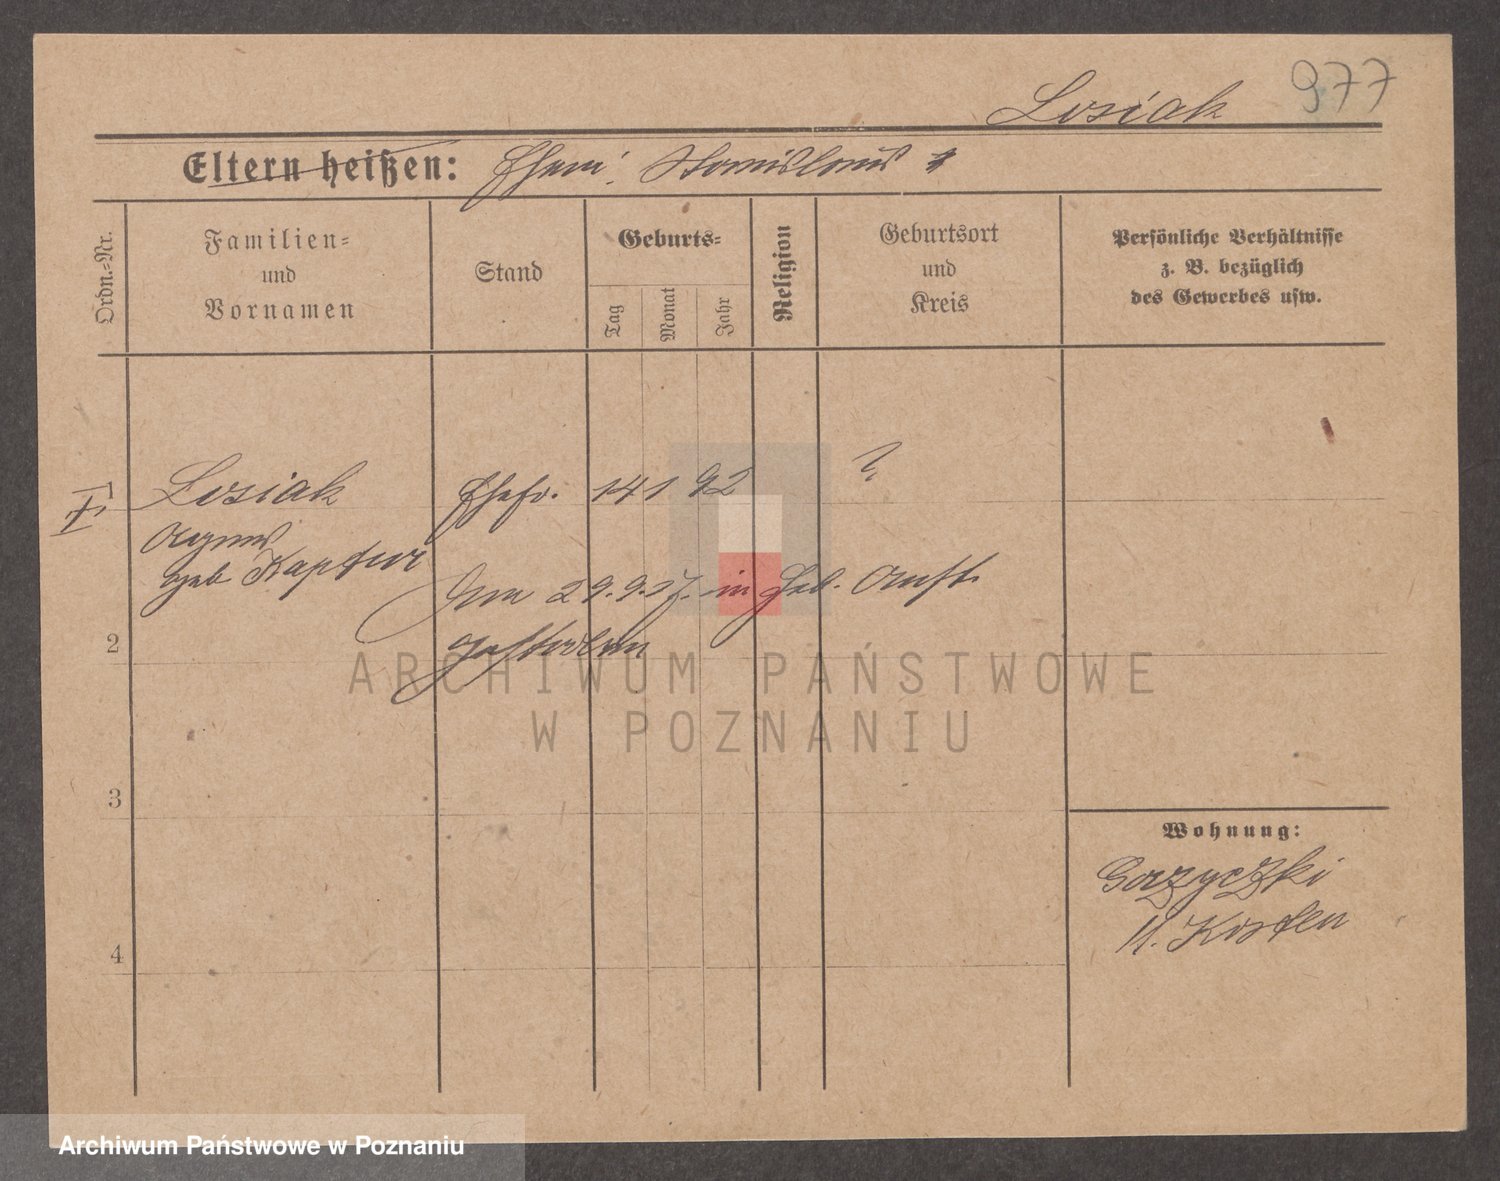 977
Losiak
Eltern heißen: Ehem. Stanislaus
Ordn.=Nr.
Familien=
und
Vornamen
Stand
Geburts=
Tag
Monat
Jahr
Religion
Geburtsort
und
Kreis
Persönliche Verhältnisse
z. B. bezüglich
des Gewerbes usw.
Losiak Ehefr. 14 1 92 ?
Agnes
geb Kaptur
Am 29.9.27. in Geb. Anst.
gestorben
2
3
4
Wohnung:
Gorzyczki
K. Kosten
ARCHIWUM PAŃSTWOWE
W POZNANIU
Archiwum Państwowe w Poznaniu